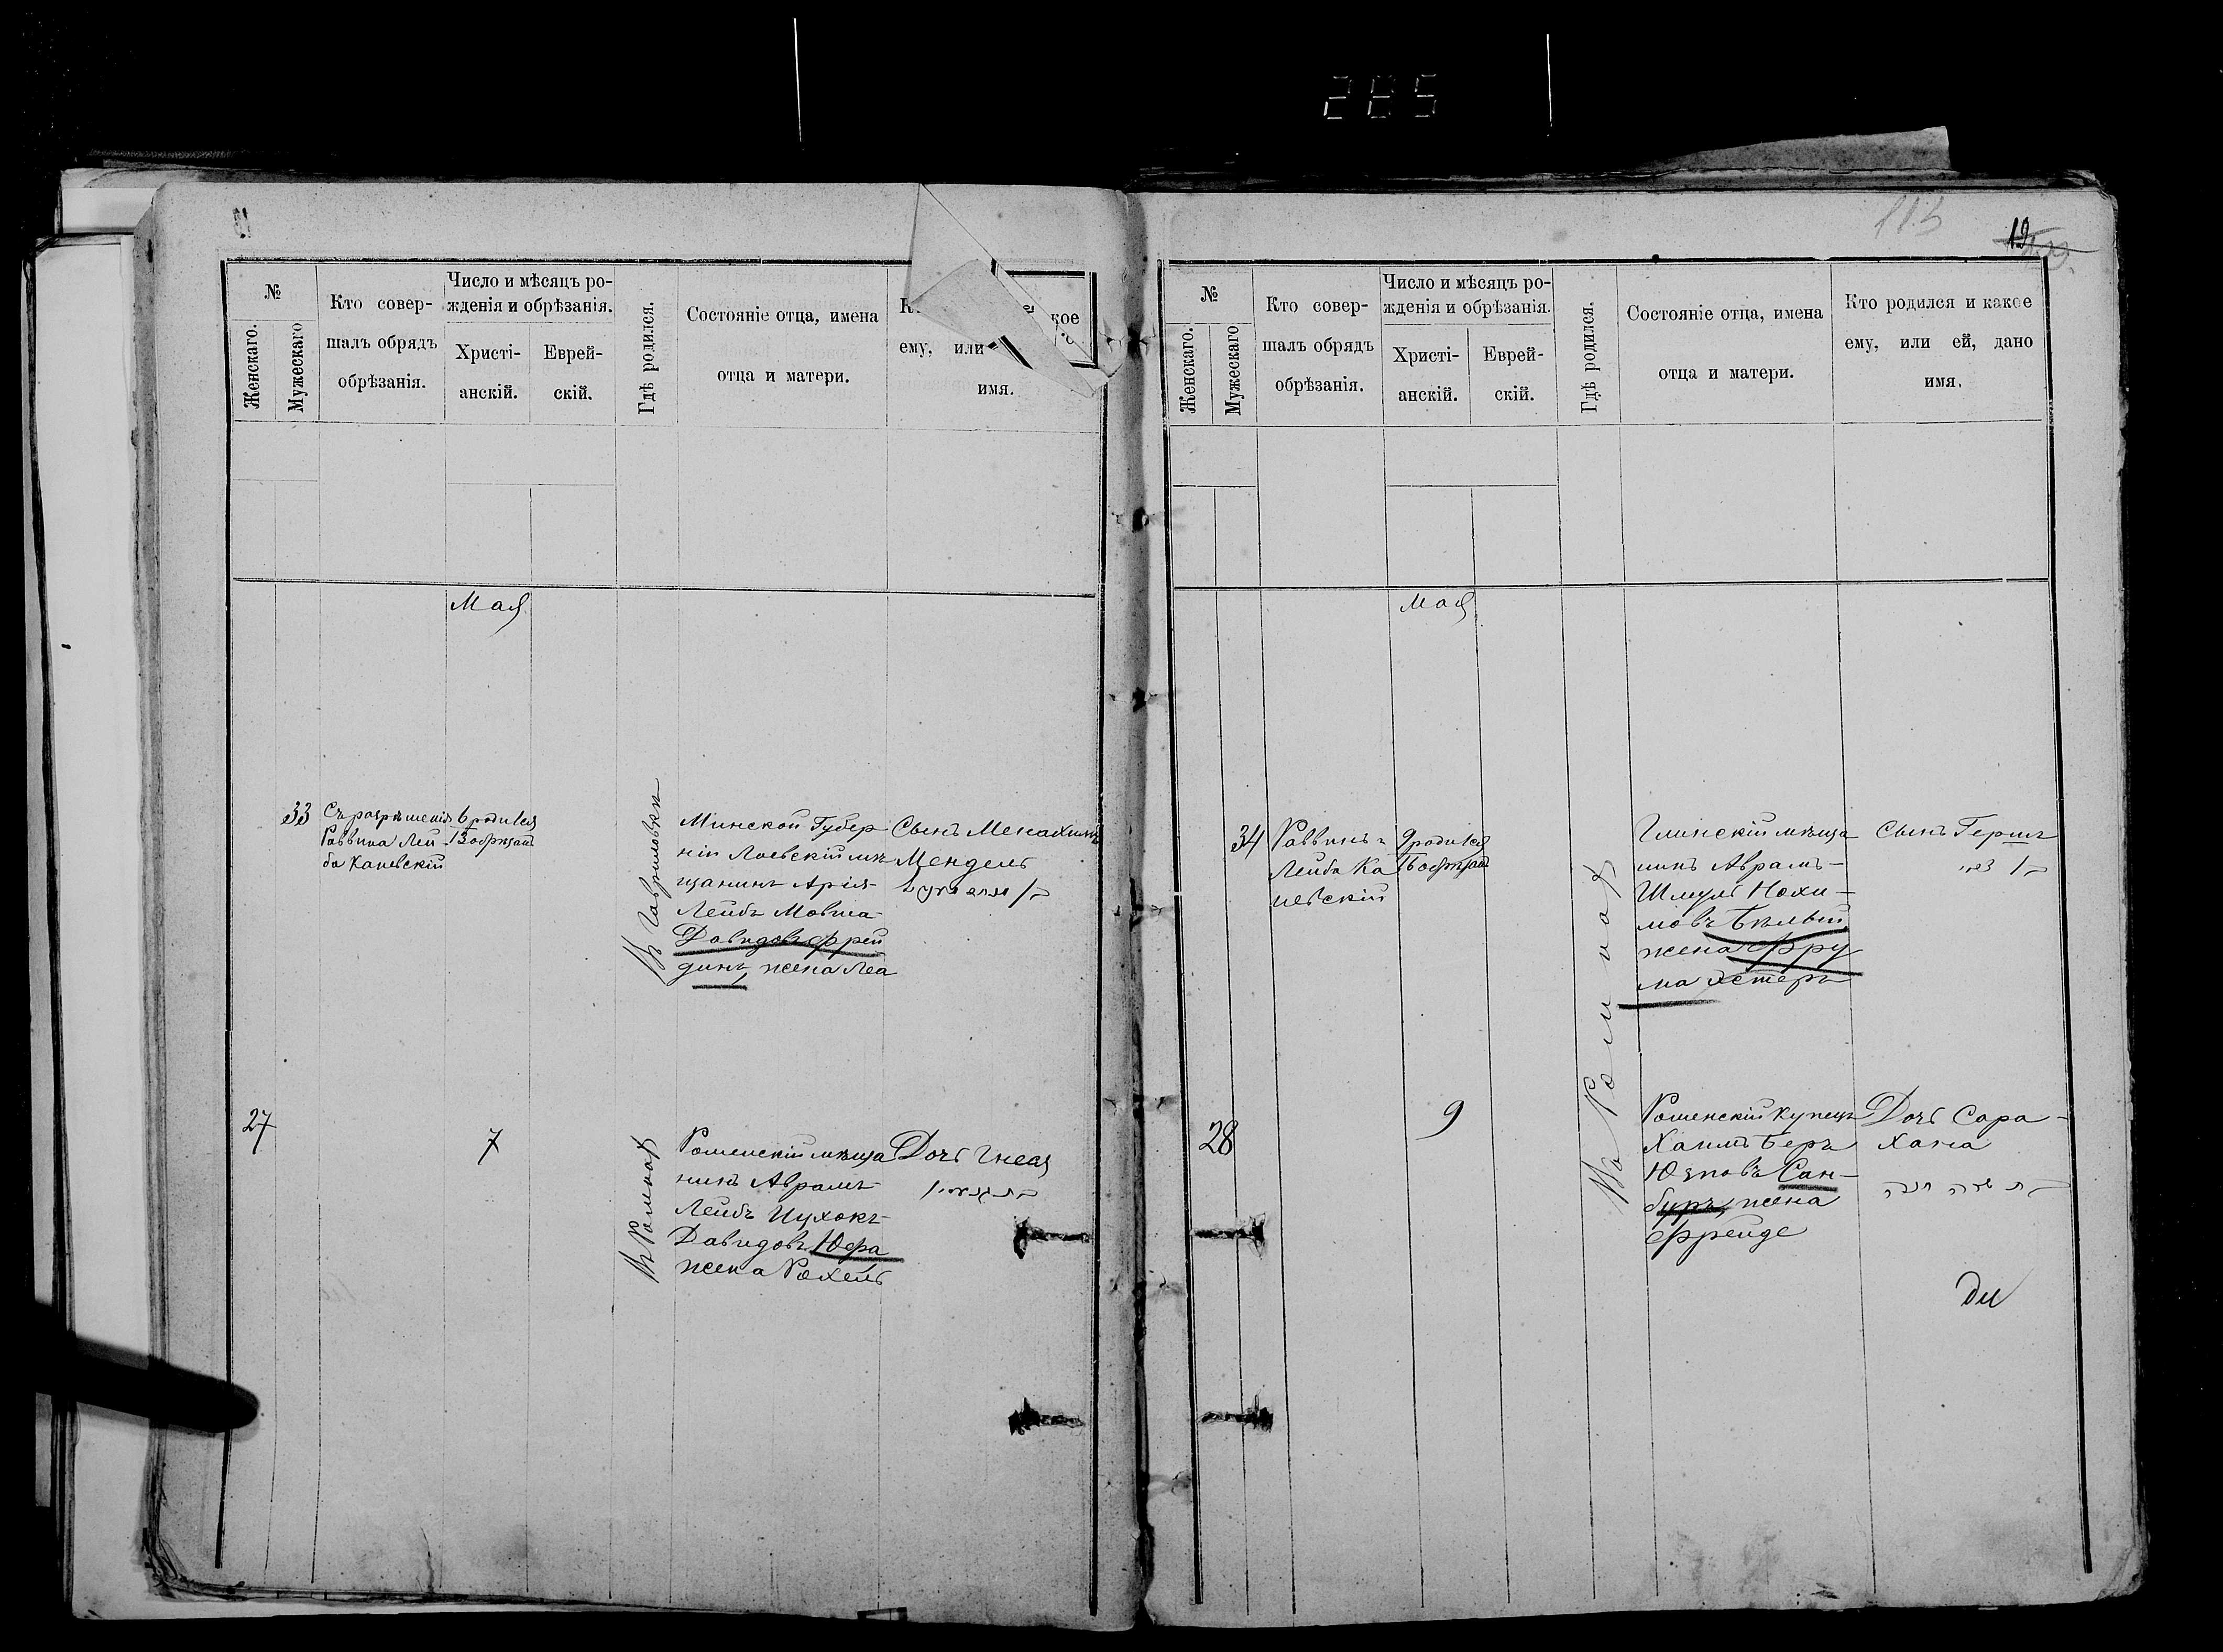 285
№
Женскаго.
Мужескаго
Кто совер-
шалъ обрядъ
обрѣзанія.
Число и мѣсяцъ ро-
жденія и обрѣзанія.
Христі-
анскій.
Еврей-
скій.
Гдѣ родился.
Состояніе отца, имена
отца и матери.
кое
ему, или
имя.
Мая
33
Съ разрѣшенія
Раввина Лей
ба Каневскій
6 родился
13 обрѣзанъ
въ Гавриловки
Минской Губер
ніи Лоевскій мѣ
щанинъ Арія-
Лейбъ Мовша-
Давидовъ Фрей
динъ, жена Леа
Сынъ Менахимъ
Мендель
27
7
въ Ромнах
Роменскій мѣща
нинъ Аврамъ-
Лейбъ Ицхокъ-
Давидовъ Юфа
жена Рохель
Дочь Гнеся
113
19
№
Женскаго.
Мужескаго
Кто совер-
шалъ обрядъ
обрѣзанія.
Число и мѣсяцъ ро-
жденія и обрѣзанія.
Христі-
анскій.
Еврей-
скій.
Гдѣ родился.
Состояніе отца, имена
отца и матери.
Кто родился и какое
ему, или ей, дано
имя.
Мая
34
Раввинъ
Лейба Ка
невскій
9 родился
16 обрѣзанъ
Во Ромнах
Глинскій мѣща
нинъ Аврамъ-
Шмуль Нохи-
мовъ Бѣлый
жена Фру
ма Эстеръ
Сынъ Гершъ
28
9
Роменскій купецъ
Хаимъ Беръ
Юзповъ Сан-
буръ, жена
Фрейде
Дочь Сара-
Хана
ת שרה חנה